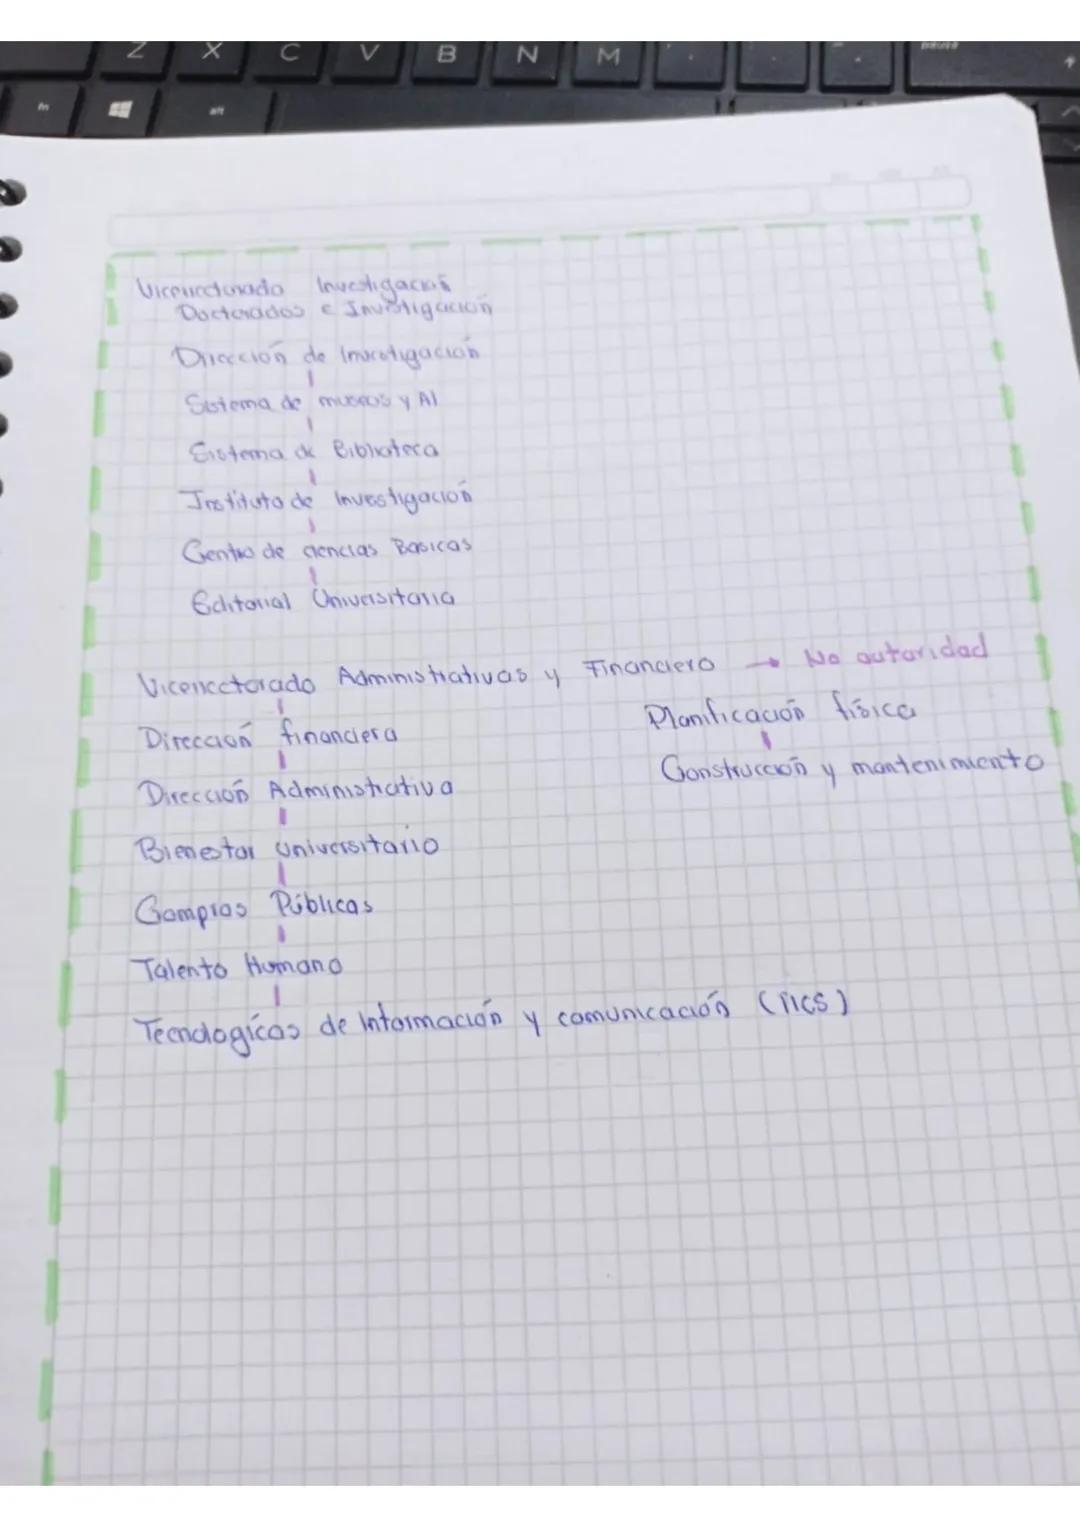 Z X C V B N M
fn alt
pausa
Vicerrectorado Investigación
Doctorados e Investigación
Dirección de Investigación
Sistema de museos y AI
Sistema de Biblioteca
Instituto de Investigación
Centro de ciencias Basicas
Editorial Universitaria
Vicerrectorado Administrativas y Financiero → No autoridad
Planificación física
Dirección financiera
Construcción y mantenimiento
Dirección Administrativa
Bienestar universitario
Compras Públicas
Talento Humano
Tecnologícas de Información y comunicación (TICS)